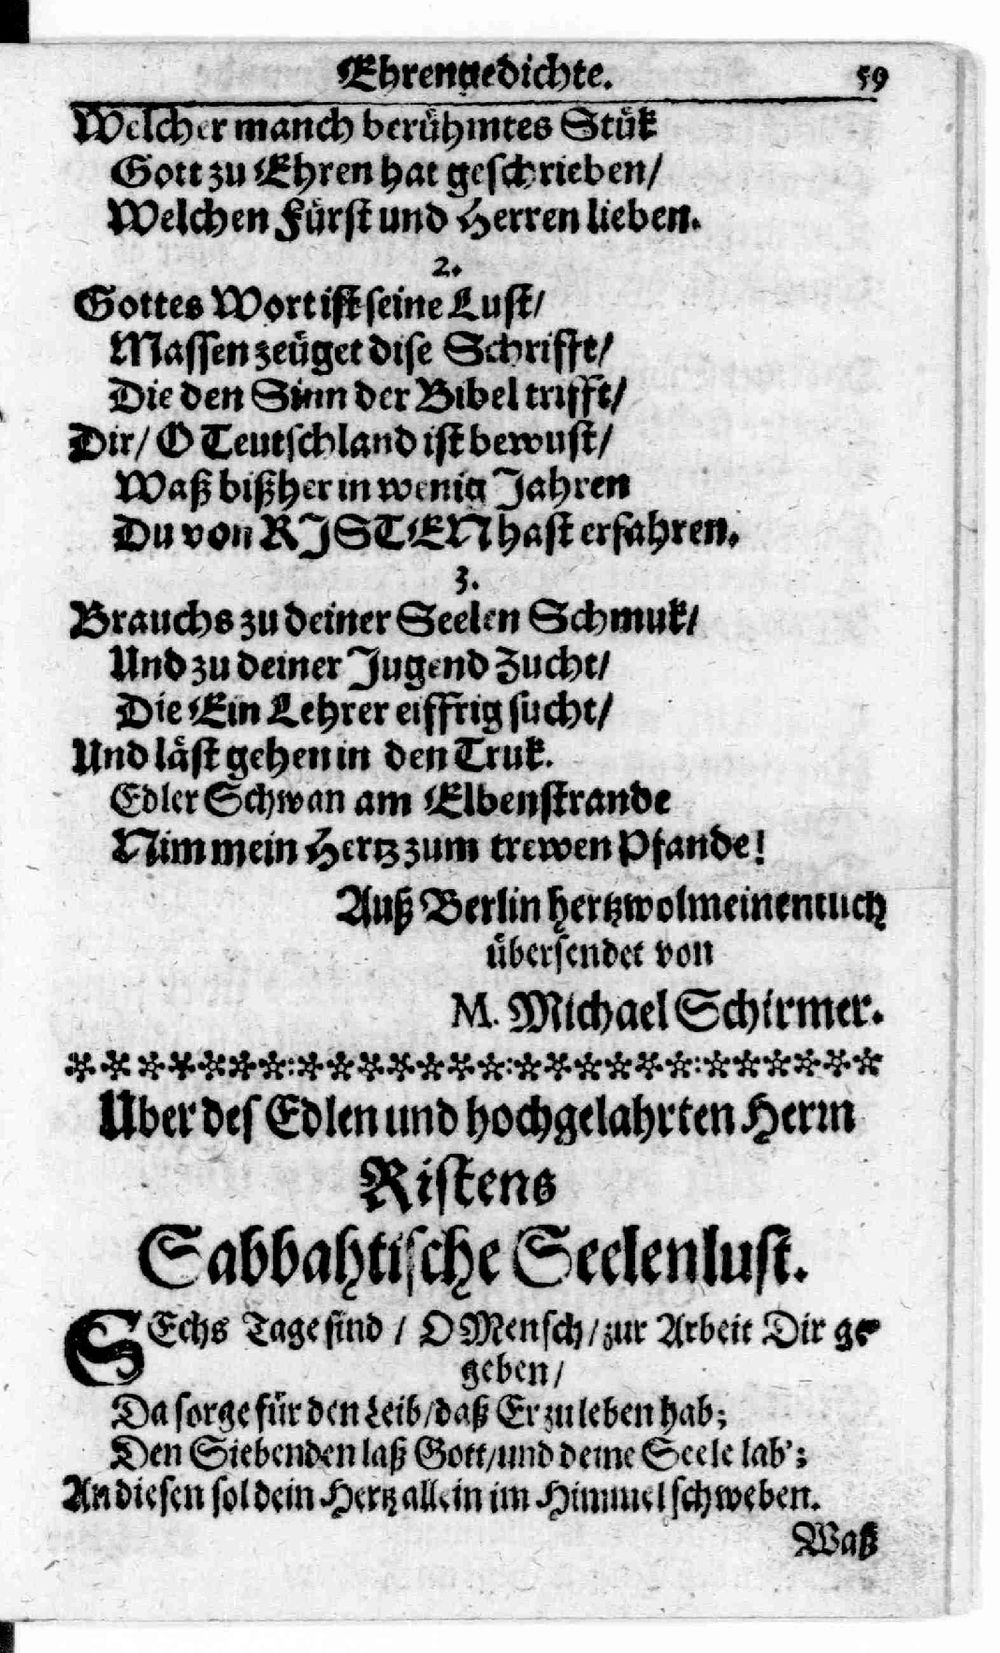 Ehrengedichte. 59
Welcher manch berühmtes Stük
Gott zu Ehren hat geschrieben/
Welchen Fürst und Herren lieben.
2.
Gottes Wort ist seine Lust/
Massen zeüget dise Schrifft/
Die den Sinn der Bibel trifft/
Dir/ O Teutschland ist bewust/
Waß bißher in wenig Jahren
Du von RJSTEN hast erfahren.
3.
Brauchs zu deiner Seelen Schmuk/
Und zu deiner Jugend Zucht/
Die Ein Lehrer eiffrig sucht/
Und läst gehen in den Truk.
Edler Schwan am Elbenstrande
Nim mein Hertz zum trewen Pfande!
Auß Berlin hertzwolmeinentlich
übersendet von
M. Michael Schirmer.
Uber des Edlen und hochgelahrten Herrn
Ristens
Sabbahtische Seelenlust.
SEchs Tage sind / O Mensch / zur Arbeit Dir ge
geben/
Da sorge für den Leib/daß Er zu leben hab;
Den Siebenden laß Gott/und deine Seele lab';
An diesen sol dein Hertz allein im Himmel schweben.
Waß